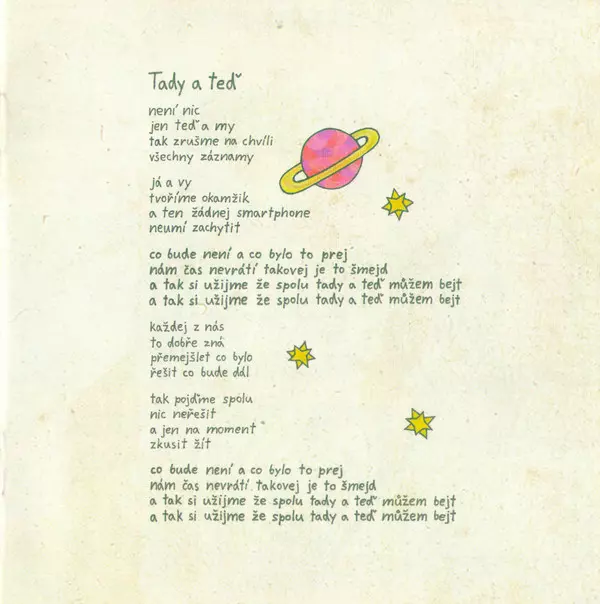 Tady a teď
není nic
jen teď a my
tak zrušme na chvíli
všechny záznamy
já a vy
tvoříme okamžik
a ten žádnej smartphone
neumí zachytit
co bude není a co bylo to prej
nám čas nevrátí takovej je to šmejd
a tak si užijme že spolu tady a teď můžem bejt
a tak si užijme že spolu tady a teď můžem bejt
každej z nás
to dobře zná
přemejšlet co bylo
řešit co bude dál
tak pojďme spolu
nic neřešit
a jen na moment
zkusit žít
co bude není a co bylo to prej
nám čas nevrátí takovej je to šmejd
a tak si užijme že spolu tady a teď můžem bejt
a tak si užijme že spolu tady a teď můžem bejt